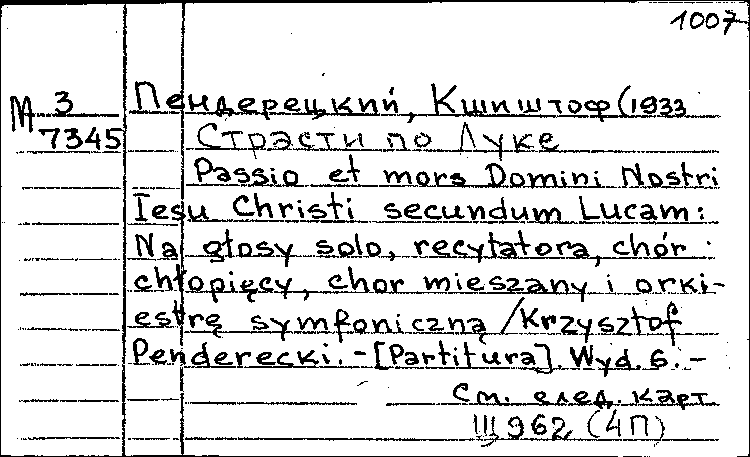 1007
М 3
7345
Пендерецкий, Кшиштоф (1933
Страсти по Луке
Passio et mors Domini Nostri
Iesu Christi secundum Lucam:
Na głosy solo, recytatora, chór
chłopięcy, chor mieszany i orki-
estrę symfoniczną / Krzysztof
Penderecki. - [Partitura]. Wyd. 6. -
См. след. карт.
Щ 962 (4П)